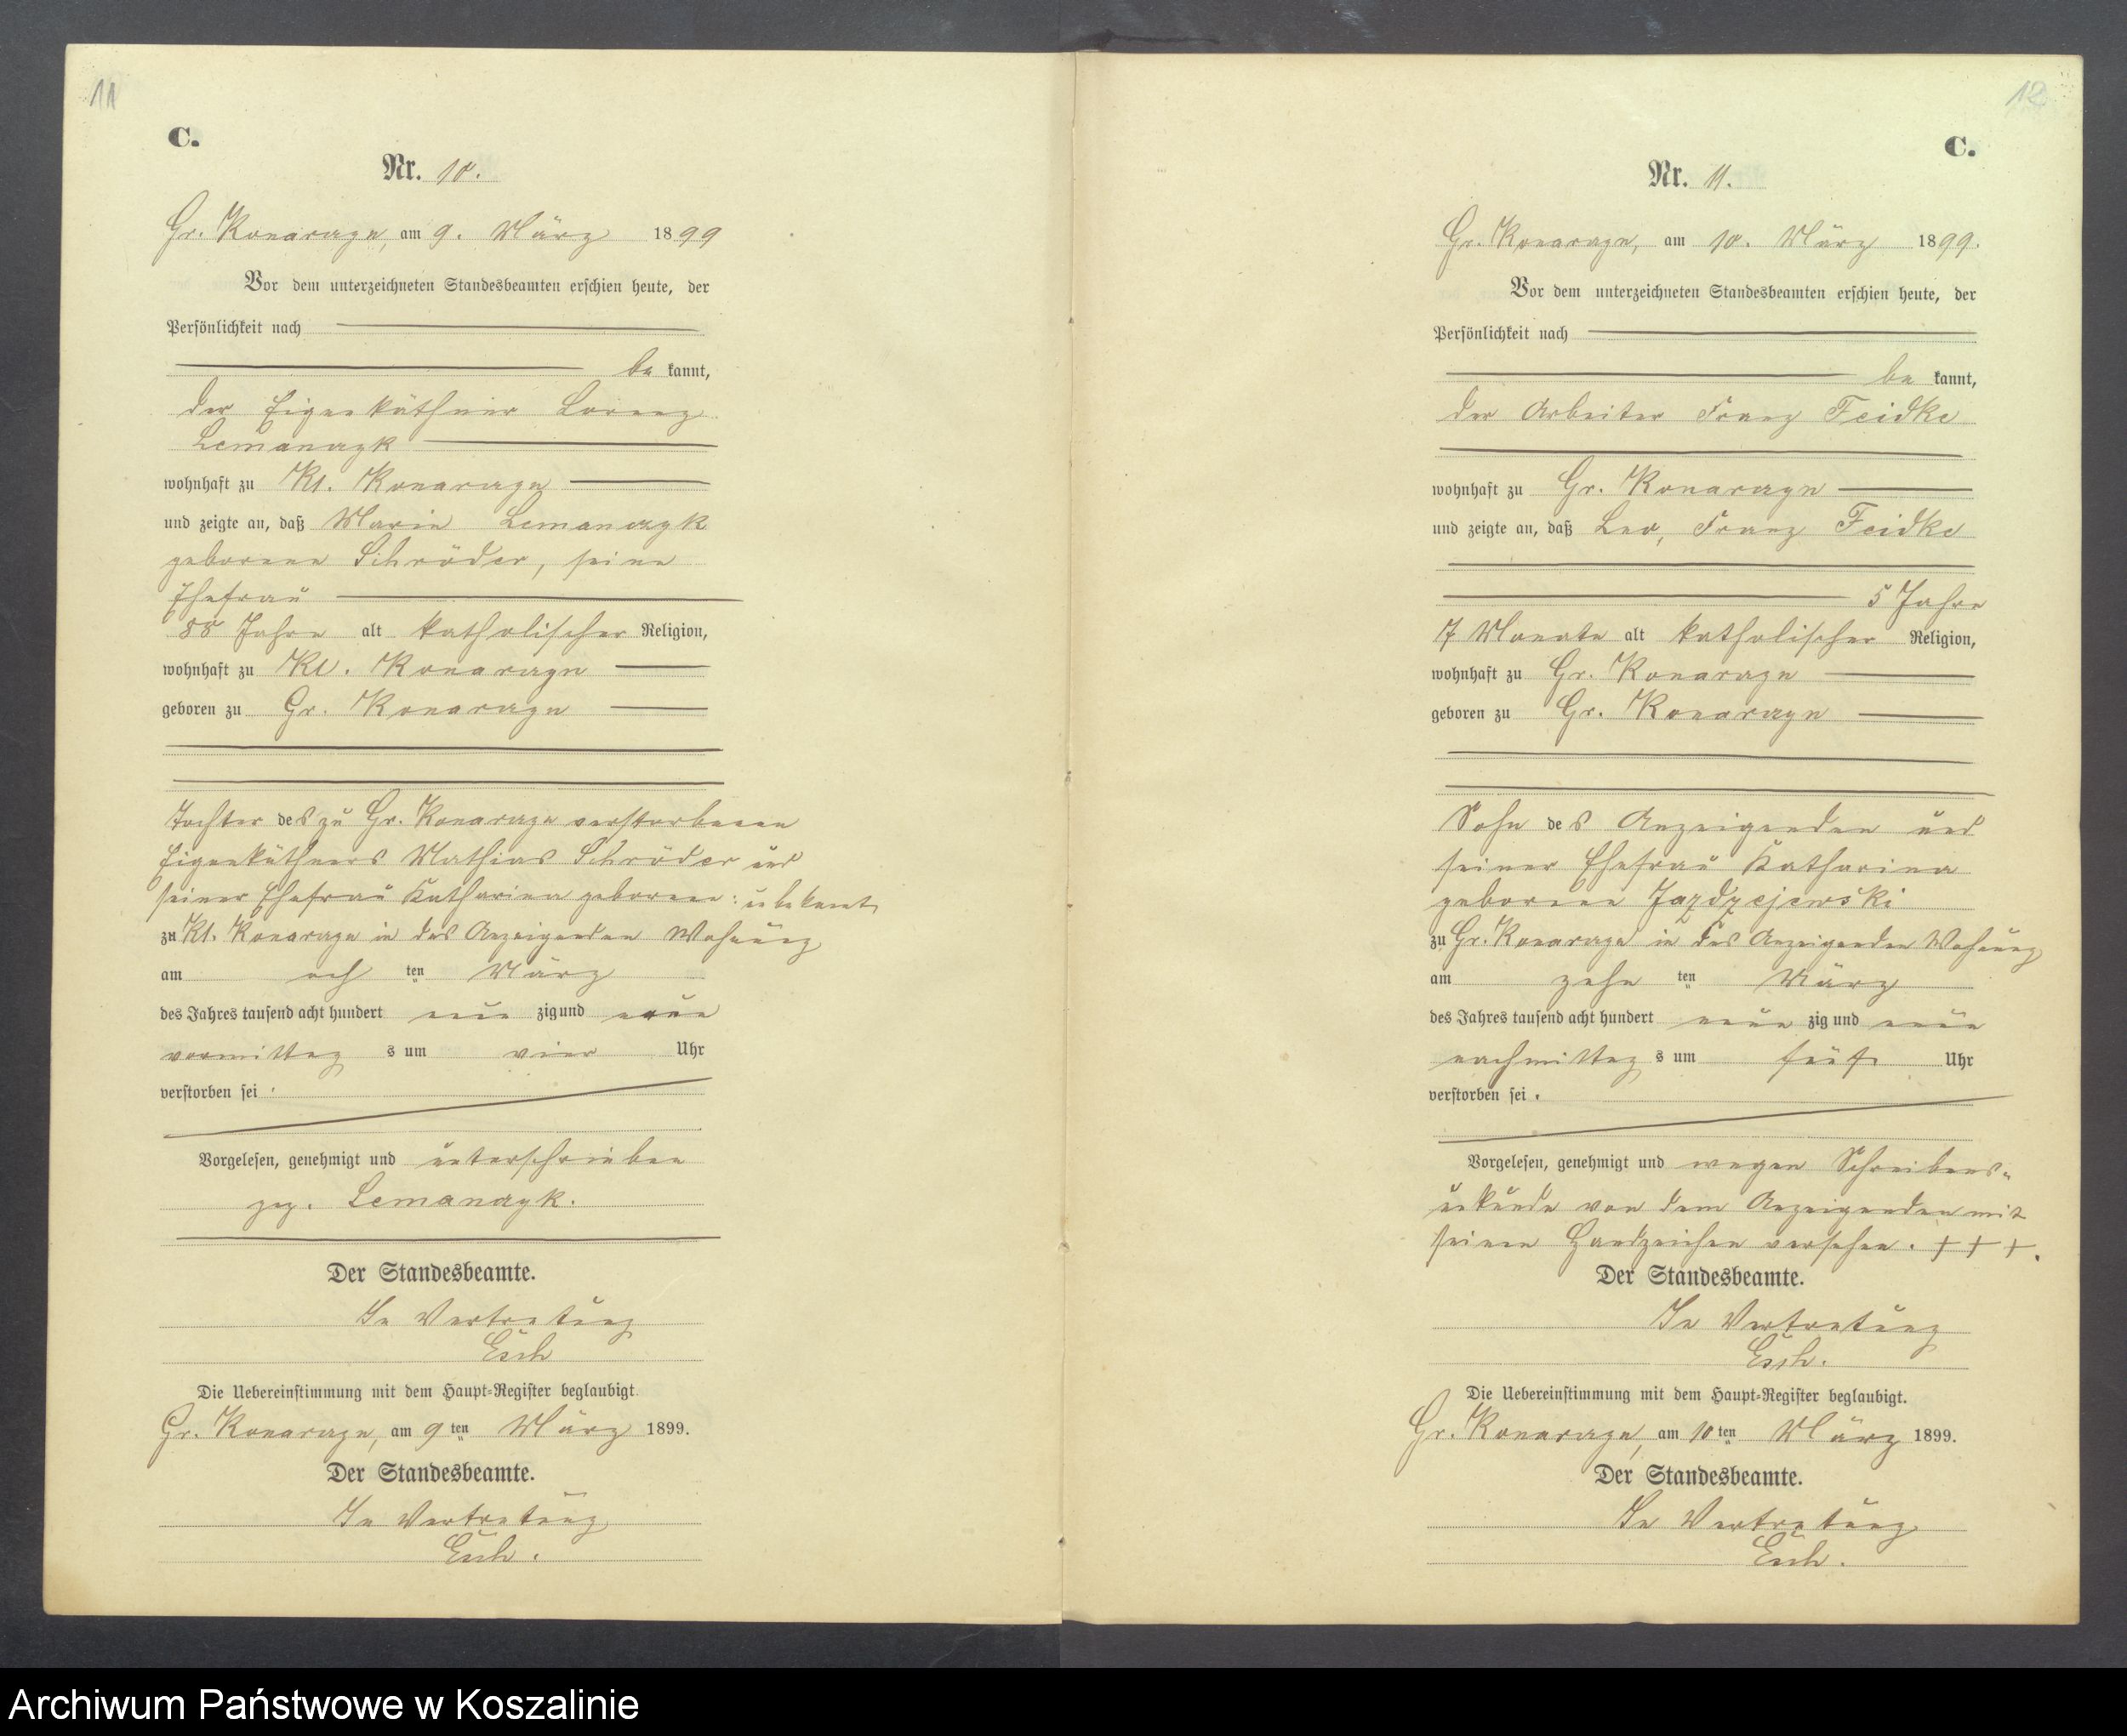 11
C.
Nr. 10.
Gr. Konarczyn, am 9. März 1899
Vor dem unterzeichneten Standesbeamten erschien heute, der
Persönlichkeit nach
be kannt,
der Eigenkäthner Lorenz
Lemanczyk
wohnhaft zu Kl. Konarczyn
und zeigte an, daß Marie Lemanczyk
geborene Schröder, seine
Ehefrau
88 Jahre alt katholischer Religion,
wohnhaft zu Kl. Konarczyn
geboren zu Gr. Konarczyn
Tochter des zu Gr. Konarczyn verstorbenen
Eigenkäthners Mathias Schröder und
seiner Ehefrau Katharina geborene:
zu Kl. Konarczyn in des Anzeigenden Wohnung
am ach ten März
des Jahres tausend acht hundert neun zig und neun
vormittag s um vier Uhr
verstorben sei.
Vorgelesen, genehmigt und unterschrieben
gez. Lemanczyk.
Der Standesbeamte.
In Vertretung
Esch
Die Uebereinstimmung mit dem Haupt-Register beglaubigt.
Gr. Konarczyn, am 9 ten März 1899.
Der Standesbeamte.
In Vertretung
Esch.
12
C.
Nr. 11.
Gr. Konarczyn, am 10. März 1899.
Vor dem unterzeichneten Standesbeamten erschien heute, der
Persönlichkeit nach
be kannt,
der Arbeiter Franz Feidke
wohnhaft zu Gr. Konarczyn
und zeigte an, daß Leo, Franz Feidke
5 Jahre
7 Monate alt katholischer Religion,
wohnhaft zu Gr. Konarczyn
geboren zu Gr. Konarczyn
Sohn des Anzeigenden und
seiner Ehefrau Katharina
geborene Jazdzejewski
zu Gr. Konarczyn in des Anzeigenden Wohnung
am zehn ten März
des Jahres tausend acht hundert neun zig und neun
nachmittag s um fünf Uhr
verstorben sei.
Vorgelesen, genehmigt und wegen Schreibens-
unkunde von dem Anzeigenden mit
seinen Handzeichen versehen. + + +.
Der Standesbeamte.
In Vertretung
Esch.
Die Uebereinstimmung mit dem Haupt-Register beglaubigt.
Gr. Konarczyn, am 10 ten März 1899.
Der Standesbeamte.
In Vertretung
Esch.
Archiwum Państwowe w Koszalinie